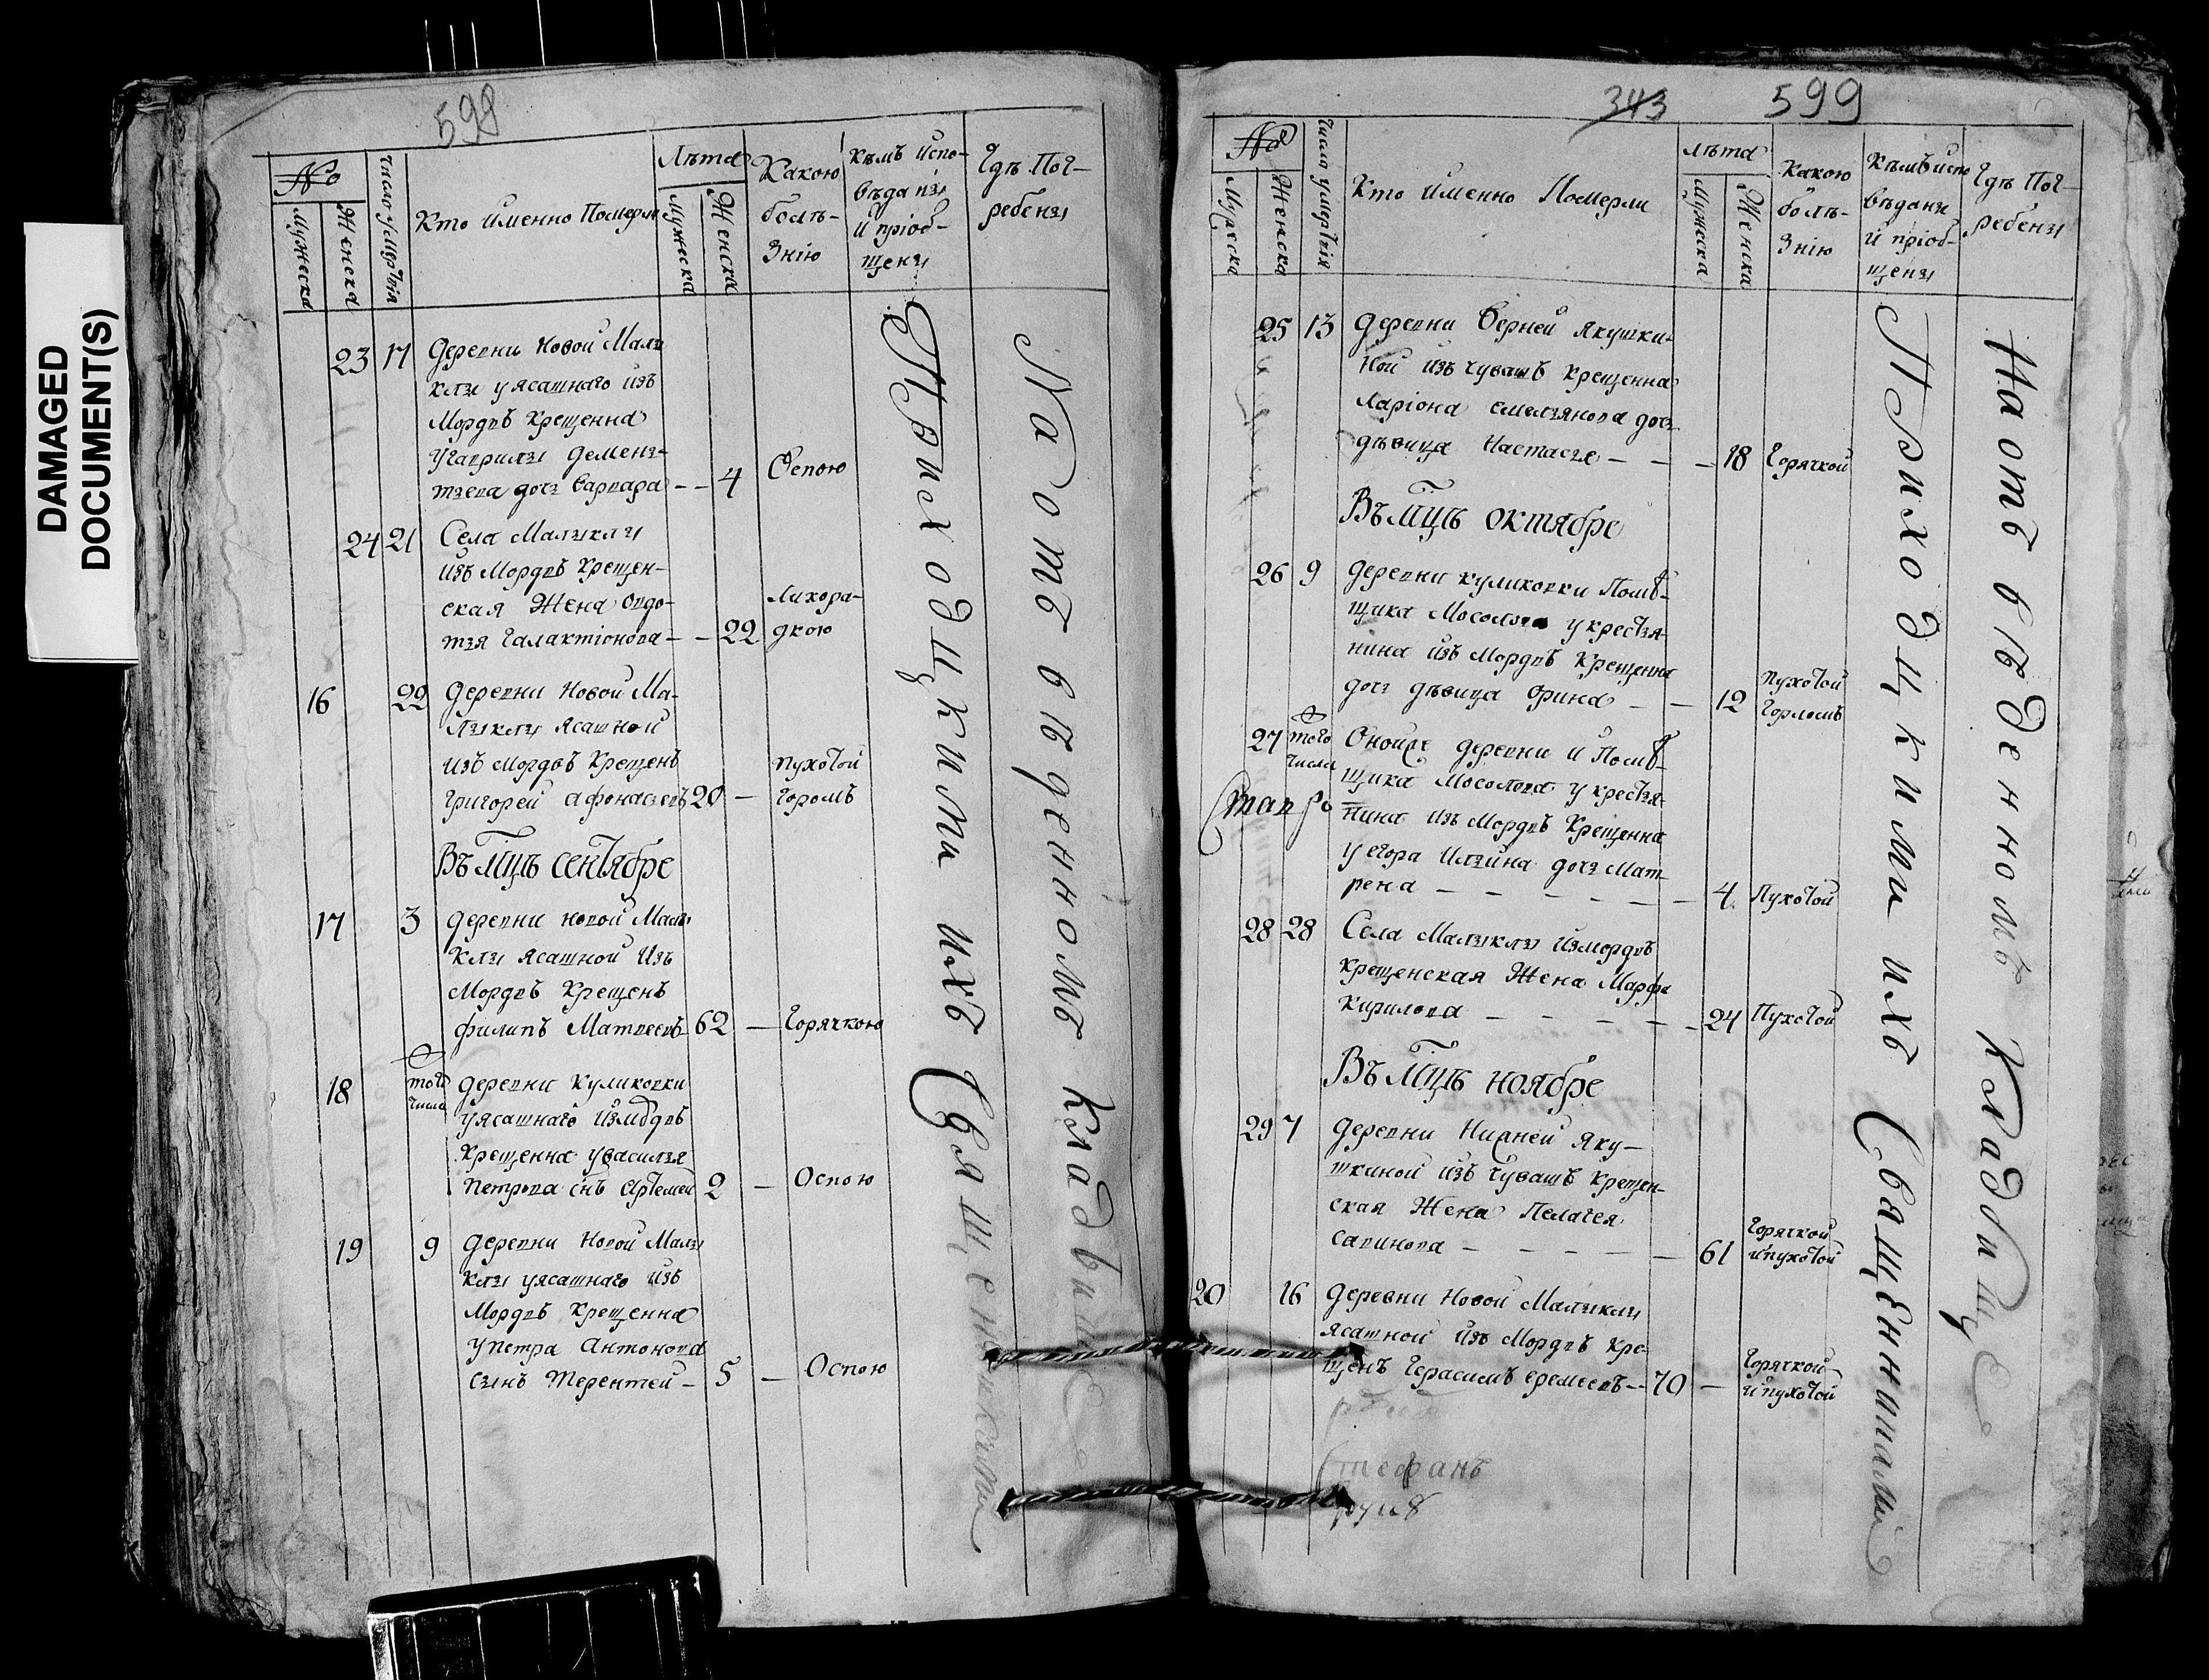 DAMAGED
DOCUMENT(S)
598
№
Мужеска
Женска
Число умертвія
Кто именно Померли
Лѣта
Мужеска
Женска
Какою
болѣ-
знію
кѣмъ испо-
вѣданы
и пріоб-
щены
Гдѣ Пог-
ребены
23 17 деревни Новой Малы
клы у ясашнаго изъ
Мордвъ Крещенна
у гаврилы деменъ-
тьева дочь варвара - - 4 Оспою
24 21 Села Малыклы
изъ Мордвъ Крещен-
ская Жена овдо-
тья галактіонова - - 22 Лихора-
дкою
16 22 деревни Новой Ма-
лыклы ясашной
изъ мордвъ Крещенъ
григорей афонасьевъ 20 - пухотой
горомъ
Въ мцѣ сентябре
17 3 деревни новой Малы
клы ясашной Изъ
Мордвъ Крещенъ
филипъ Матвеевъ 62 - Горячкою
18 того
числа
деревни куликовки
у ясашнаго измодвъ
Крещенна у василья
петрова снъ Артемей 2 - Оспою
19 9 деревни Новой Малы
клы у ясашнаго изъ
Мордвъ Крещенна
у петра Антонова
сынъ Терентей - 5 - Оспою
Приходцкими ихъ Священниками
На отъ введенномъ кладбище
343 599
№
Мужеска
Женска
Числа умертвія
Кто именно Померли
лѣта
Мужеска
Женска
Какою
болѣ-
знію
Кѣмъ испо
вѣданы
и пріоб-
щены
Гдѣ Пог-
ребены
25 13 деревни верней якушки-
ной изъ чувашъ крещенна
Ларіона емельянова дочь
дѣвица Настасья - - - 18 Горячкой
Въ мцѣ октябре
26 9 деревни куликовки Помѣ-
щика Мосолова у крестья-
нина изъ Мордвъ Крещенна
дочь дѣвица Орина - - 12 пухотой
горломъ
27 того
числа
Оной же деревни и Помѣ-
щика Мосолова у крестья-
нина изъ Мордвъ Крещенна
у егора Ильина дочь Мат-
рена - - - - - - 4 Пухотой
28 28 Села Малыклы измордвъ
крещенская Жена Марфа
Кирилова - - - - - - 24 Пухотой
Въ мцѣ ноябре
29 7 деревни Нижней яку-
шкиной изъ чувашъ крещен-
ская Жена Пелагея
савинова - - - - - 61 Горячкой
и пухотой
20 16 Деревни Новой Малыклы
ясашной изъ Мордвъ Кре-
щенъ Герасимъ еремеевъ -- 70 - Горячкой
и пухотой
Стефанъ
Приходцкими ихъ Священниками
На отъ введенномъ Кладбище